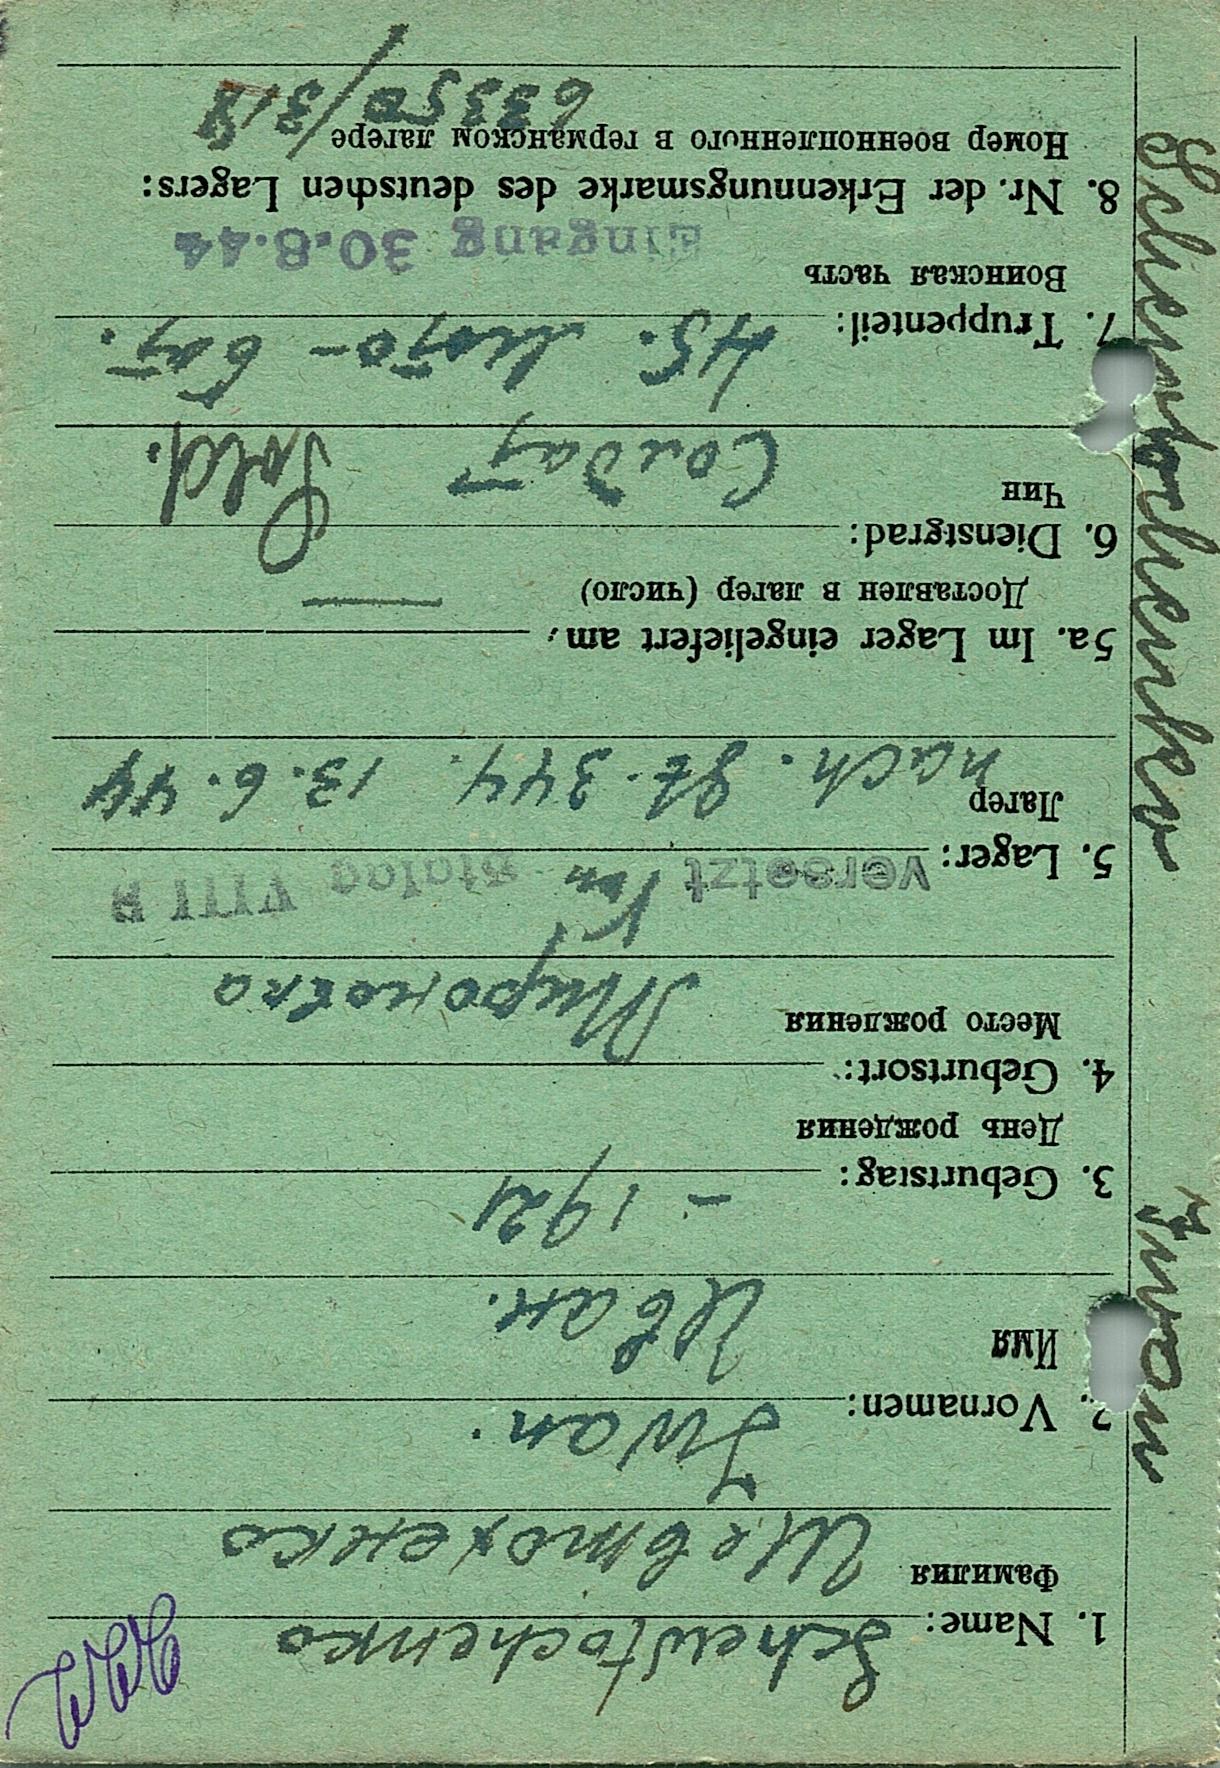 1. Name: Schewtochenko
Фамилия Шевтохенко
2. Vornamen: Iwan.
Имя Иван.
3. Geburtstag: – 1921
День рождения
4. Geburtsort:
Место рождения Мироновка
5. Lager: versetzt Von Stalag VIII B
Лагер nach. St. 344. 13.6.44
5a. Im Lager eingeliefert am,
Доставлен в лагер (число)
6. Dienstgrad: Sold.
Чин Солдат
7. Truppenteil: 45. мото-бат.
Воинская часть
Eingang 30.8.44
8. Nr. der Erkennungsmarke des deutschen Lagers:
Номер военнопленного в германском лагере
63350/318
Schewtochenko Iwan